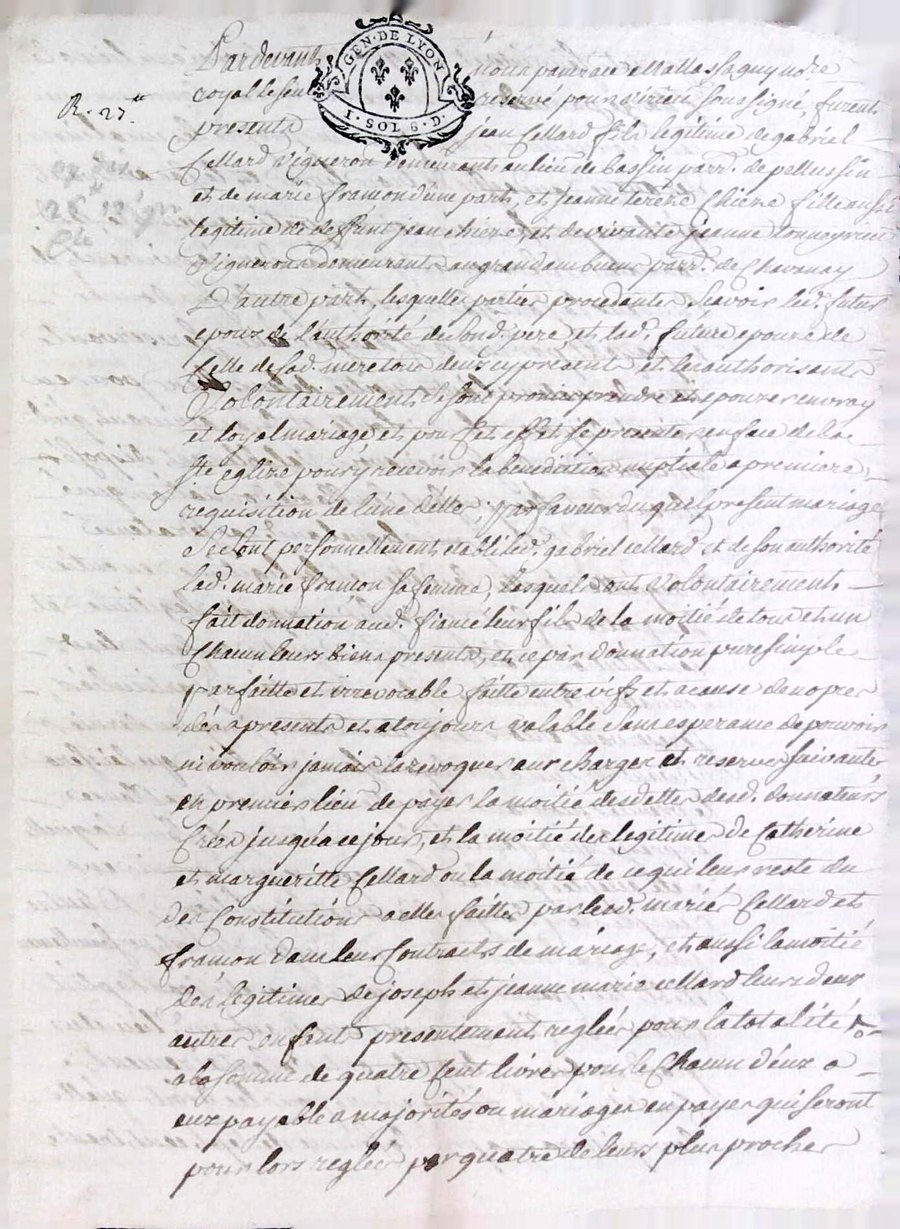 GEN. DE LYON
I. SOL 6. D.
R. 27.
Pardevant nous
royal le seul reservé pour d'érieu soussigné, furent
presents jean Cellard fils legitime de gabriel
Cellard vigneron demeurant au lieu de bassin parr. de pellussin
et de marie framon d'une part, et jeanne térèse Chiéze fille aussi
legitime de deffunt jean chieze, et de vivante jeanne
vignerons demeurants au grand embuent parr. de Chavanay
D'autre part, lesquelles parties procedantes sçavoir led. futur
epoux de l'authorité de sond. pere, et lad. future epouse de
celle de sad. mere tous deux cy presents et les authorisant
Volontairement se sont promis prendre et epouzer en vray
et loyal mariage, et pour cet effet se presenter en face de la
Ste. eglise pour y recevoir la bénédiction nuptiale a premiere
requisition de l'une d'elles, en faveur duquel present mariage
Se sont personnellement etablis led. gabriel cellard et de son authorité
lad. marie framon sa femme, lesquels ont volontairement
fait donnation aud. fiancé leur fils de la moitié de tous et un
Chacun leurs biens presents, et ce par donnation pure simple
parfaitte et irrevocable faitte entre vifs et a cause de nopces
dés a presents et a toujours valable sans esperance de pouvoir
ni vouloir jamais la revoquer aux charges et reserves suivantes
en premier lieu de payer la moitié des dettes desd. donnateurs
Créés jusqu'a ce jour, et la moitié des legitimes de Catherine
et margueritte Cellard ou la moitié de ce qui leur reste du
des Constitutions a elles faittes par lesd. mariés Cellard et
framon dans leurs Contracts de mariage, et aussi la moitié
des legitimes de joseph et jeanne marie cellard leurs deux
autres enfants presentement reglées pour la totalité
a la somme de quatre cent livres pour le Chacun d'eux a
eux payable a majorités ou mariages en payes qui seront
pour lors reglées par quatre de leurs plus proches